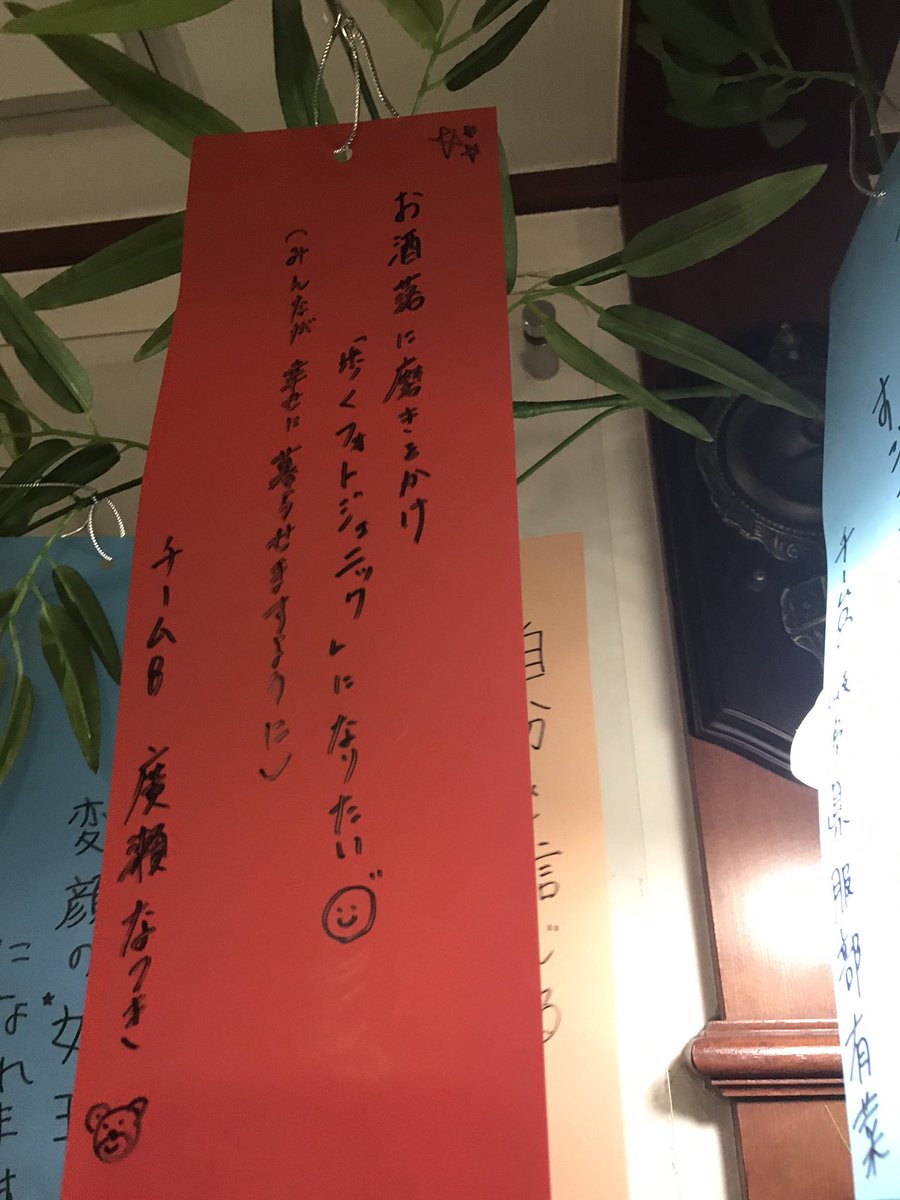 お洒落に磨きをかけ
「歩くフォトジェニック」になりたい
(みんなが幸せに暮らせますように)
チームB 廣瀬なつき
自分を信じる
変顔の女王
になれます
服部有菜